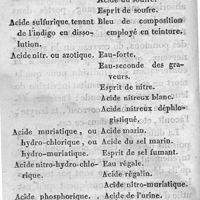 Acide du soufre.
Esprit de soufre.
Acide sulfurique tenant Bleu de composition
de l'indigo en disso- employé en teinture.
lution.
Acide nitr. ou azotique. Eau-forte.
Eau-seconde des gra-
veurs.
Esprit de nitre.
Acide nitreux blanc.
Acide nitreux déphlo-
gistiqué.
Acide muriatique, ou Acide marin.
hydro-chlorique, ou Acide du sel marin.
hydro-muriatique. Esprit de sel fumant.
Acide nitro-hydro-chlo- Eau régale.
rique. Acide régalin.
Acide nitro-muriatique.
Acide phosphorique. Acide de l'urine.